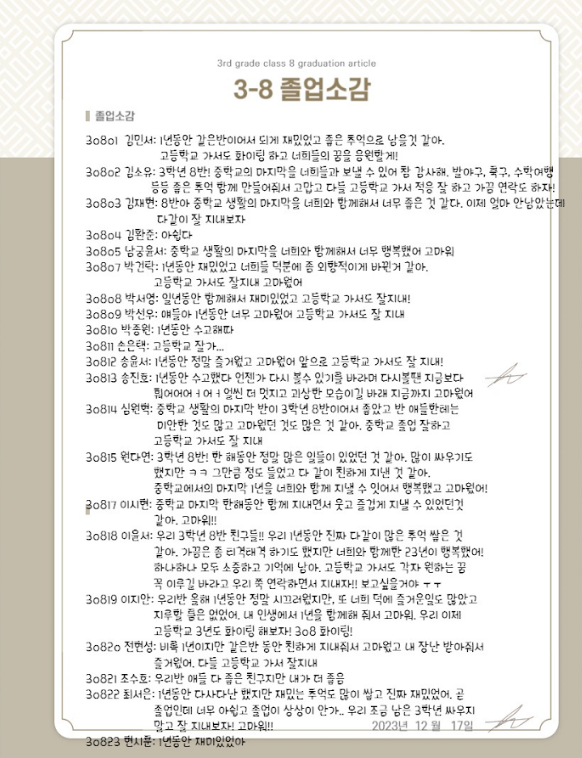 3rd grade class 8 graduation article
3-8 졸업소감
졸업소감
30801 김민서: 1년동안 같은반이어서 되게 재밌었고 좋은 추억으로 남을것 같아.
고등학교 가서도 화이팅 하고 너희들의 꿈을 응원할게!
30802 김소유: 3학년 8반! 중학교의 마지막을 너희들과 보낼 수 있어 참 감사해. 발야구, 축구, 수학여행
등등 좋은 추억 함께 만들어줘서 고맙고 다들 고등학교 가서 적응 잘 하고 가끔 연락도 하자!
30803 김재현: 8반아 중학교 생활의 마지막을 너희와 함께해서 너무 좋은 것 같다. 이제 얼마 안남았는데
다같이 잘 지내보자
30804 김환준: 아쉽다
30805 남궁윤서: 중학교 생활의 마지막을 너희와 함께해서 너무 행복했어 고마워
30807 박건탁: 1년동안 재밌었고 너희들 덕분에 좀 외향적이게 바뀐거 같아.
고등학교 가서도 잘지내 고마웠어
30808 박서영: 일년동안 함께해서 재미있었고 고등학교 가서도 잘지내!
30809 박선우: 얘들아 1년동안 너무 고마웠어 고등학교 가서도 잘 지내
30810 박종원: 1년동안 수고해따
30811 손은택: 고등학교 잘가...
30812 송윤서: 1년동안 정말 즐거웠고 고마웠어 앞으로 고등학교 가서도 잘 지내!
30813 송진호: 1년동안 수고했다 언젠가 다시 볼수 있기를 바라며 다시볼땐 지금보다
훠어어어ㅓ어ㅓ얼씬 더 멋지고 괴상한 모습이길 바래 지금까지 고마웠어
30814 심원혁: 중학교 생활의 마지막 반이 3학년 8반이어서 좋았고 반 애들한테는
미안한 것도 많고 고마웠던 것도 많은 것 같아. 중학교 졸업 잘하고
고등학교 가서도 잘 지내
30815 원다연: 3학년 8반! 한 해동안 정말 많은 일들이 있었던 것 같아. 많이 싸우기도
했지만 ㅋㅋ 그만큼 정도 들었고 다 같이 친하게 지낸 것 같아.
중학교에서의 마지막 1년을 너희와 함께 지낼 수 잇어서 행복했고 고마웠어!
30817 이시현: 중학교 마지막 한해동안 함께 지내면서 웃고 즐겁게 지낼 수 있었던것
같아. 고마워!!
30818 이윤서: 우리 3학년 8반 친구들!! 우리 1년동안 진짜 다같이 많은 추억 쌓은 것
같아. 가끔은 좀 티격태격 하기도 했지만 너희와 함께한 23년이 행복했어!
하나하나 모두 소중하고 기억에 남아. 고등학교 가서도 각자 원하는 꿈
꼭 이루길 바라고 우리 쭉 연락하면서 지내자!! 보고싶을거야 ㅜㅜ
30819 이지안: 우리반 올해 1년동안 정말 시끄러웠지만, 또 너희 덕에 즐거운일도 많았고
지루할 틈은 없었어. 내 인생에서 1년을 함께해 줘서 고마워. 우리 이제
고등학교 3년도 화이팅 해보자! 308 화이팅!
30820 전현성: 비록 1년이지만 같은반 동안 친하게 지내줘서 고마웠고 내 장난 받아줘서
즐거웠어. 다들 고등학교 가서 잘지내
30821 조수호: 우리반 애들 다 좋은 친구지만 내가 더 좋음
30822 최서은: 1년동안 다사다난 했지만 재밌는 추억도 많이 쌓고 진짜 재밌었어. 곧
졸업인데 너무 아쉽고 졸업이 상상이 안가.. 우리 조금 남은 3학년 싸우지
말고 잘 지내보자! 고마워!!
2023년 12월 17일
30823 현시훈: 1년동안 재미있었어